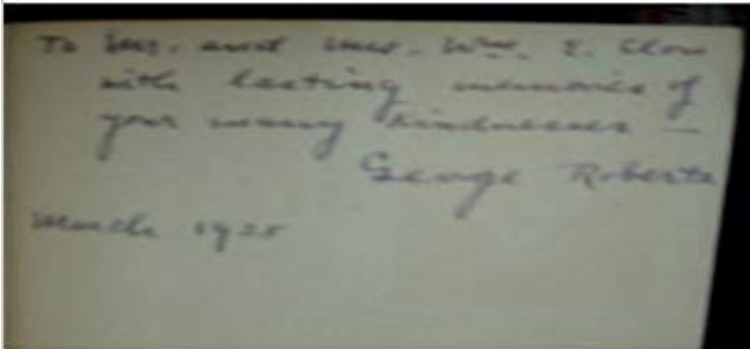 To Mr. and Mrs. Wm. E. Clow
with lasting memories of
your many kindnesses —
George Roberts
March 1925